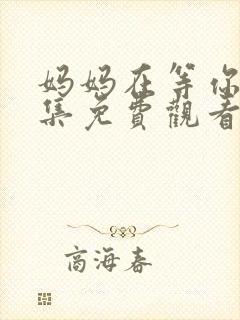 妈妈在等你
集免費觀看
商海春